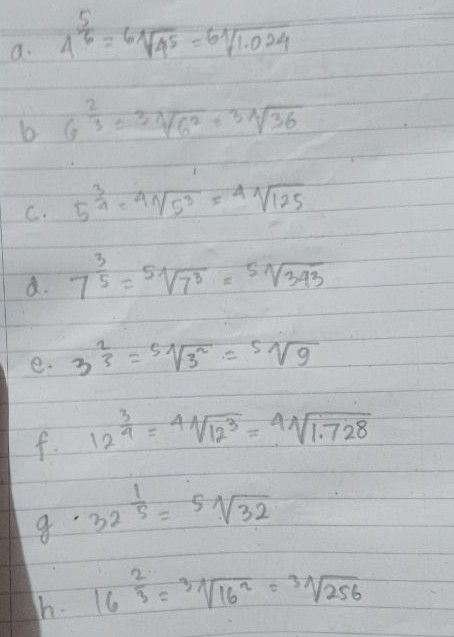 a. 4^(5/6) = ⁶√4⁵ = ⁶√1.024
b 6^(2/3) = ³√6² = ³√36
c. 5^(3/4) = ⁴√5³ = ⁴√125
d. 7^(3/5) = ⁵√7³ = ⁵√343
e. 3^(2/3) = ⁵√3² = ⁵√9
f. 12^(3/4) = ⁴√12³ = ⁴√1.728
g. 32^(1/5) = ⁵√32
h. 16^(2/3) = ³√16² = ³√256